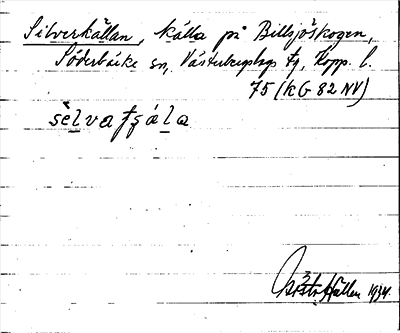 Silverkällan, källa på Billsjöskogen,
Söderbärke sn, Västerbergslags fg, Kopp. l.
75 (KG 82 NV)
sèlvatʂála
Hallen 1934.